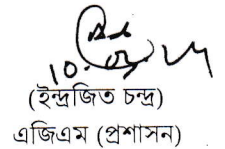 (ইন্দ্রজিত চন্দ্র)
এজিএম (প্রশাসন)